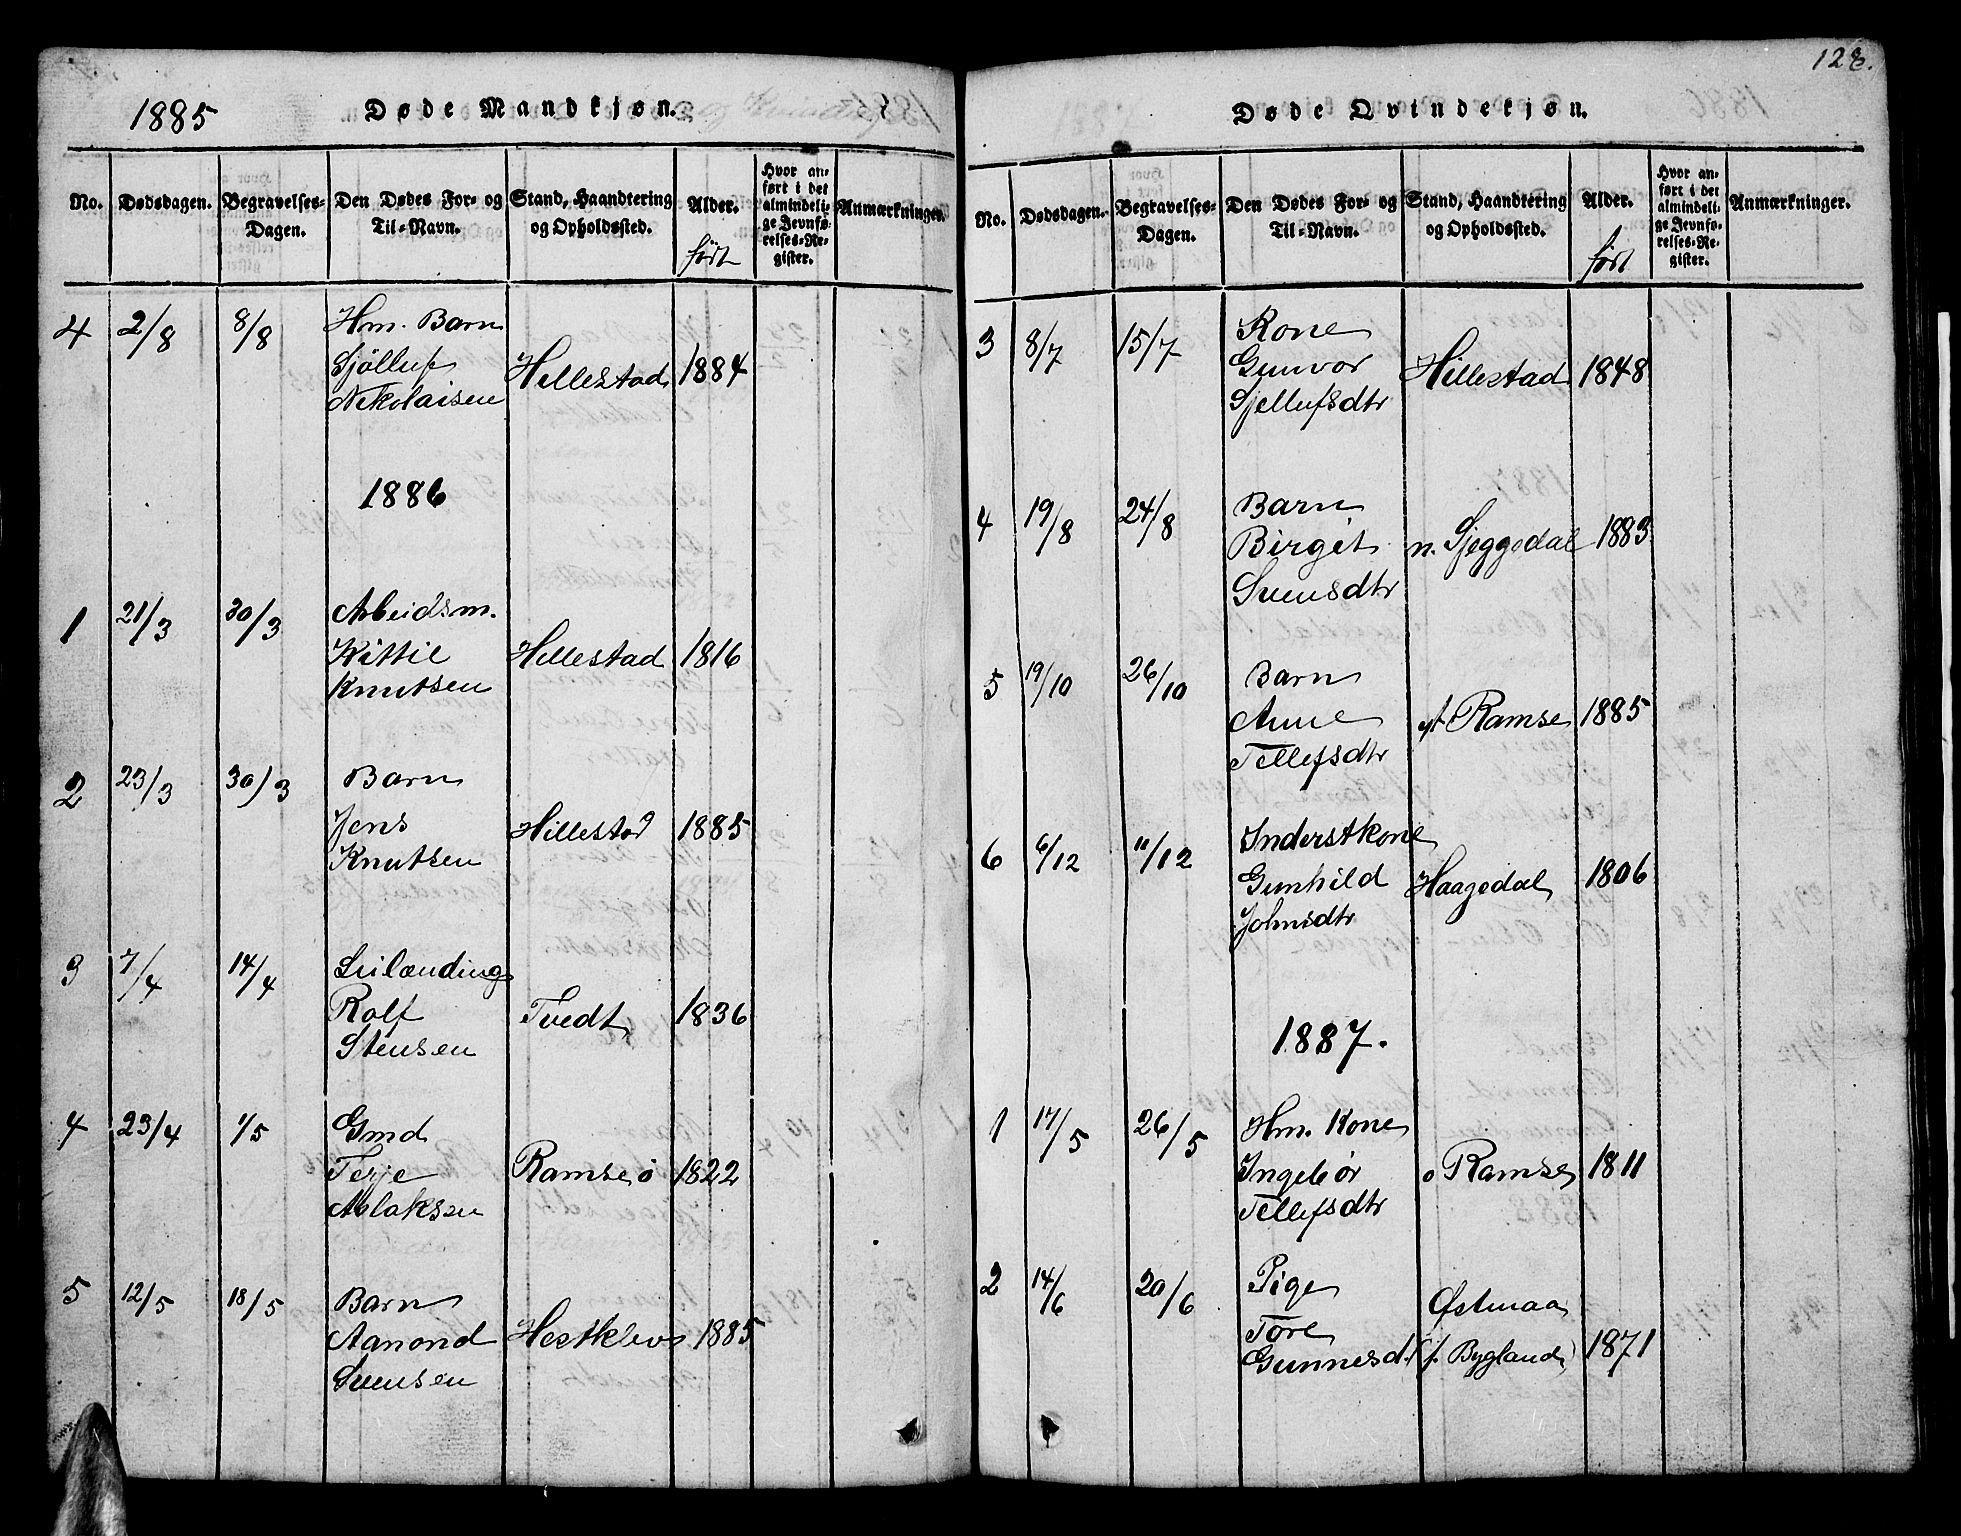 1885 Døde Mandkjøn.
No. Dødsdagen. Begravelses-Dagen. Den Dødes For- og Til-Navn. Stand, Haandtering og Opholdssted. Alder. født Hvor anført i det almindelige Jevnførelses-Register. Anmærkninger.
4 2/8 8/8 Hm. Barn
Sjölluf Hellestad 1884
Nikolaisen
1886
1 21/3 30/3 Arbeidsm.
Kittil Hellestad 1816
Knutsen
2 23/3 30/3 Barn
Jens Hillestad 1885
Knutsen
3 7/4 14/4 Leilænding
Rolf Tvedt 1836
Stensen
4 23/4 1/5 Gmd
Terje Ramse ø 1822
Aslaksen
5 12/5 18/5 Barn
Aamond Hestklev 1885
Svensen
128.
Døde Qvindekjøn.
No. Dødsdagen. Begravelses-Dagen. Den Dødes For- og Til-Navn. Stand, Haandtering og Opholdssted. Alder. født Hvor anført i det almindelige Jevnførelses-Register. Anmærkninger.
3 8/7 15/7 Kone
Gunvor Hillestad 1848
Sjellufsdtr
4 19/8 24/8 Barn
Birgit n. Sjeggedal 1883
Svensdtr
5 19/10 26/10 Barn
Anne yt Ramse 1885
Tellefsdtr
6 6/12 11/12 Inderstkone
Gunhild Haagedal 1806
Johnsdtr
1887.
1 17/5 26/5 Hm. Kone
Ingebør o Ramse 1811
Tellefsdtr
2 14/6 20/6 Pige
Tore Østmaa
Gunnesd. (f. Bygland) 1871